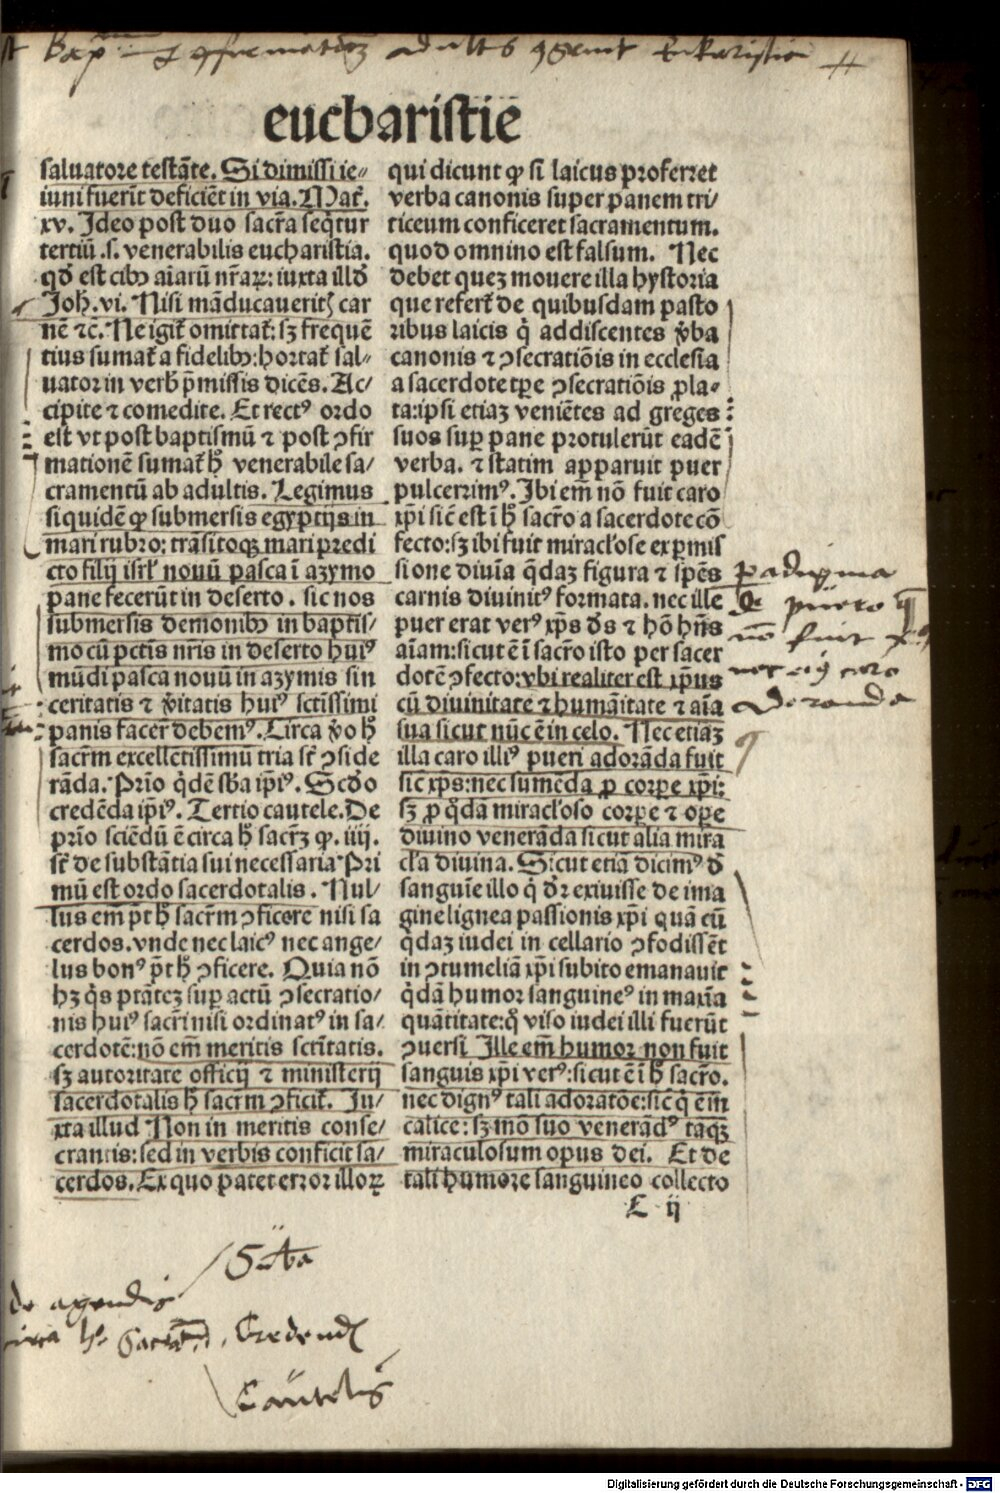 eucharistie
saluatore testāte. Si dimissi ie⸗
iuni fuerīt deficiēt in via. Mat̄.
xv. Ideo post duo sacr̄a seq̄tur
tertiū .s. venerabilis eucharistia.
qd̄ est cibꝰ aīarū nr̄aꝝ: iuxta illd̄
Joh̄. vi. Nisi māducaueritꝭ car
nē ⁊c̄. Ne igit̄ omittat̄: sꝫ frequē
tius sumat̄ a fidelibꝰ: hortat̄ sal⸗
uator in verbꝭ p̄missis dicēs. Ac/
cipite ⁊ comedite. Et rectꝰ ordo
est vt post baptismū ⁊ post ꝯfir
mationē sumat̄ h̄ venerabile sa/
cramentū ab adultis. Legimus
siquidē ꝙ submersis egyptijs in
mari rubro: trāsitoqꝫ mari predi
cto filij isrl̄ nouū pasca ī azymo
pane fecerūt in deserto. sic nos
submersis demonibꝰ in baptis/
mo cū pctīs nr̄is in deserto huiꝰ
mūdi pasca nouū in azymis sin
ceritatis ⁊ v̄itatis huiꝰ sctīssimi
panis facer̄ debemꝰ. Circa v̄o h̄
sacr̄m excellētissimū tria sr̄t ꝯside
rāda. Prīo q̄dē sb̄a ip̄iꝰ. Scd̄o
credēda ip̄iꝰ. Tertio cautele. De
prīo sciēdū ē circa h̄ sacr̄ꝫ ꝙ. iiij.
sr̄t de substātia sui necessaria Pri
mū est ordo sacerdotalis. Nul/
lus em̄ pt̄ h̄ sacr̄m ꝯficere nisi sa
cerdos. vnde nec laicꝰ nec ange/
lus bonꝰ pt̄ h̄ ꝯficere. Quia nō
hꝫ q̄s ptātēꝫ suꝑ actū ꝯsecratio/
nis huiꝰ sacr̄i nisi ordinatꝰ in sa/
cerdotē: nō em̄ meritis sctītatis.
sꝫ autoritate officij ⁊ ministerij
sacerdotalis h̄ sacr̄m ꝯficit̄. Iu/
xta illud Non in meritis conse/
crantis: sed in verbis conficit sa/
cerdos. Ex quo patet error illoꝝ
qui dicunt ꝙ si laicus proferret
verba canonis super panem tri/
ticeum conficeret sacramentum.
quod omnino est falsum. Nec
debet queꝫ mouere illa hystoria
que refert̄ de quibusdam pasto
ribus laicis q̄ addiscentes v̄ba
canonis ⁊ ꝯsecratiōis in ecclesia
a sacerdote tꝑe ꝯsecratiōis ꝓla⸗
ta: ipsi etiaꝫ veniētes ad greges
suos suꝑ pane protulerūt eadē
verba. ⁊ statim apparuit puer
pulcerrimꝰ. Ibi em̄ nō fuit caro
xp̄i sic̄ est ī h̄ sacr̄o a sacerdote cō
fecto: sꝫ ibi fuit miracl̄ose ex ꝑmis
sione diuīa q̄daꝫ figura ⁊ spēs
carnis diuinitꝰ formata. nec ille
puer erat verꝰ xp̄s dꝰs ⁊ hō hn̄s
aīam: sicut ē ī sacr̄o isto per sacer
dotē ꝯfecto: vbi realiter est xp̄us
cū diuinitate ⁊ humāitate ⁊ aīa
sua sicut nūc ē in celo. Nec etiaꝫ
illa caro illiꝰ pueri adorāda fuit
sic̄ xp̄s: nec sumēda ꝓ corꝑe xp̄i:
sꝫ ꝓ q̄dā miracl̄oso corꝑe ⁊ oꝑe
diuino venerāda sicut alia mira
cl̄a diuina. Sicut etiā dicimꝰ d̄
sanguīe illo q̄ dr̄ exiuisse de ima
gine lignea passionis xp̄i quā cū
q̄daꝫ iudei in cellario ꝯfodissēt
in ꝯtumeliā xp̄i subito emanauit
q̄dā humor sanguineꝰ in maxīa
quātitate: q̄ viso iudei illi fuerūt
ꝯuersi Ille em̄ humor non fuit
sanguis xp̄i verꝰ: sicut ē ī h̄ sacr̄o.
nec dignꝰ tali adoratōe: sic̄ q̄ ē in
calice: sꝫ mō suo venerādꝰ tāqꝫ
miraculosum opus dei. Et de
tali humore sanguineo collecto
C ij
de agendis
Credend
Cautelis
Digitalisierung gefördert durch die Deutsche Forschungsgemeinschaft - DFG